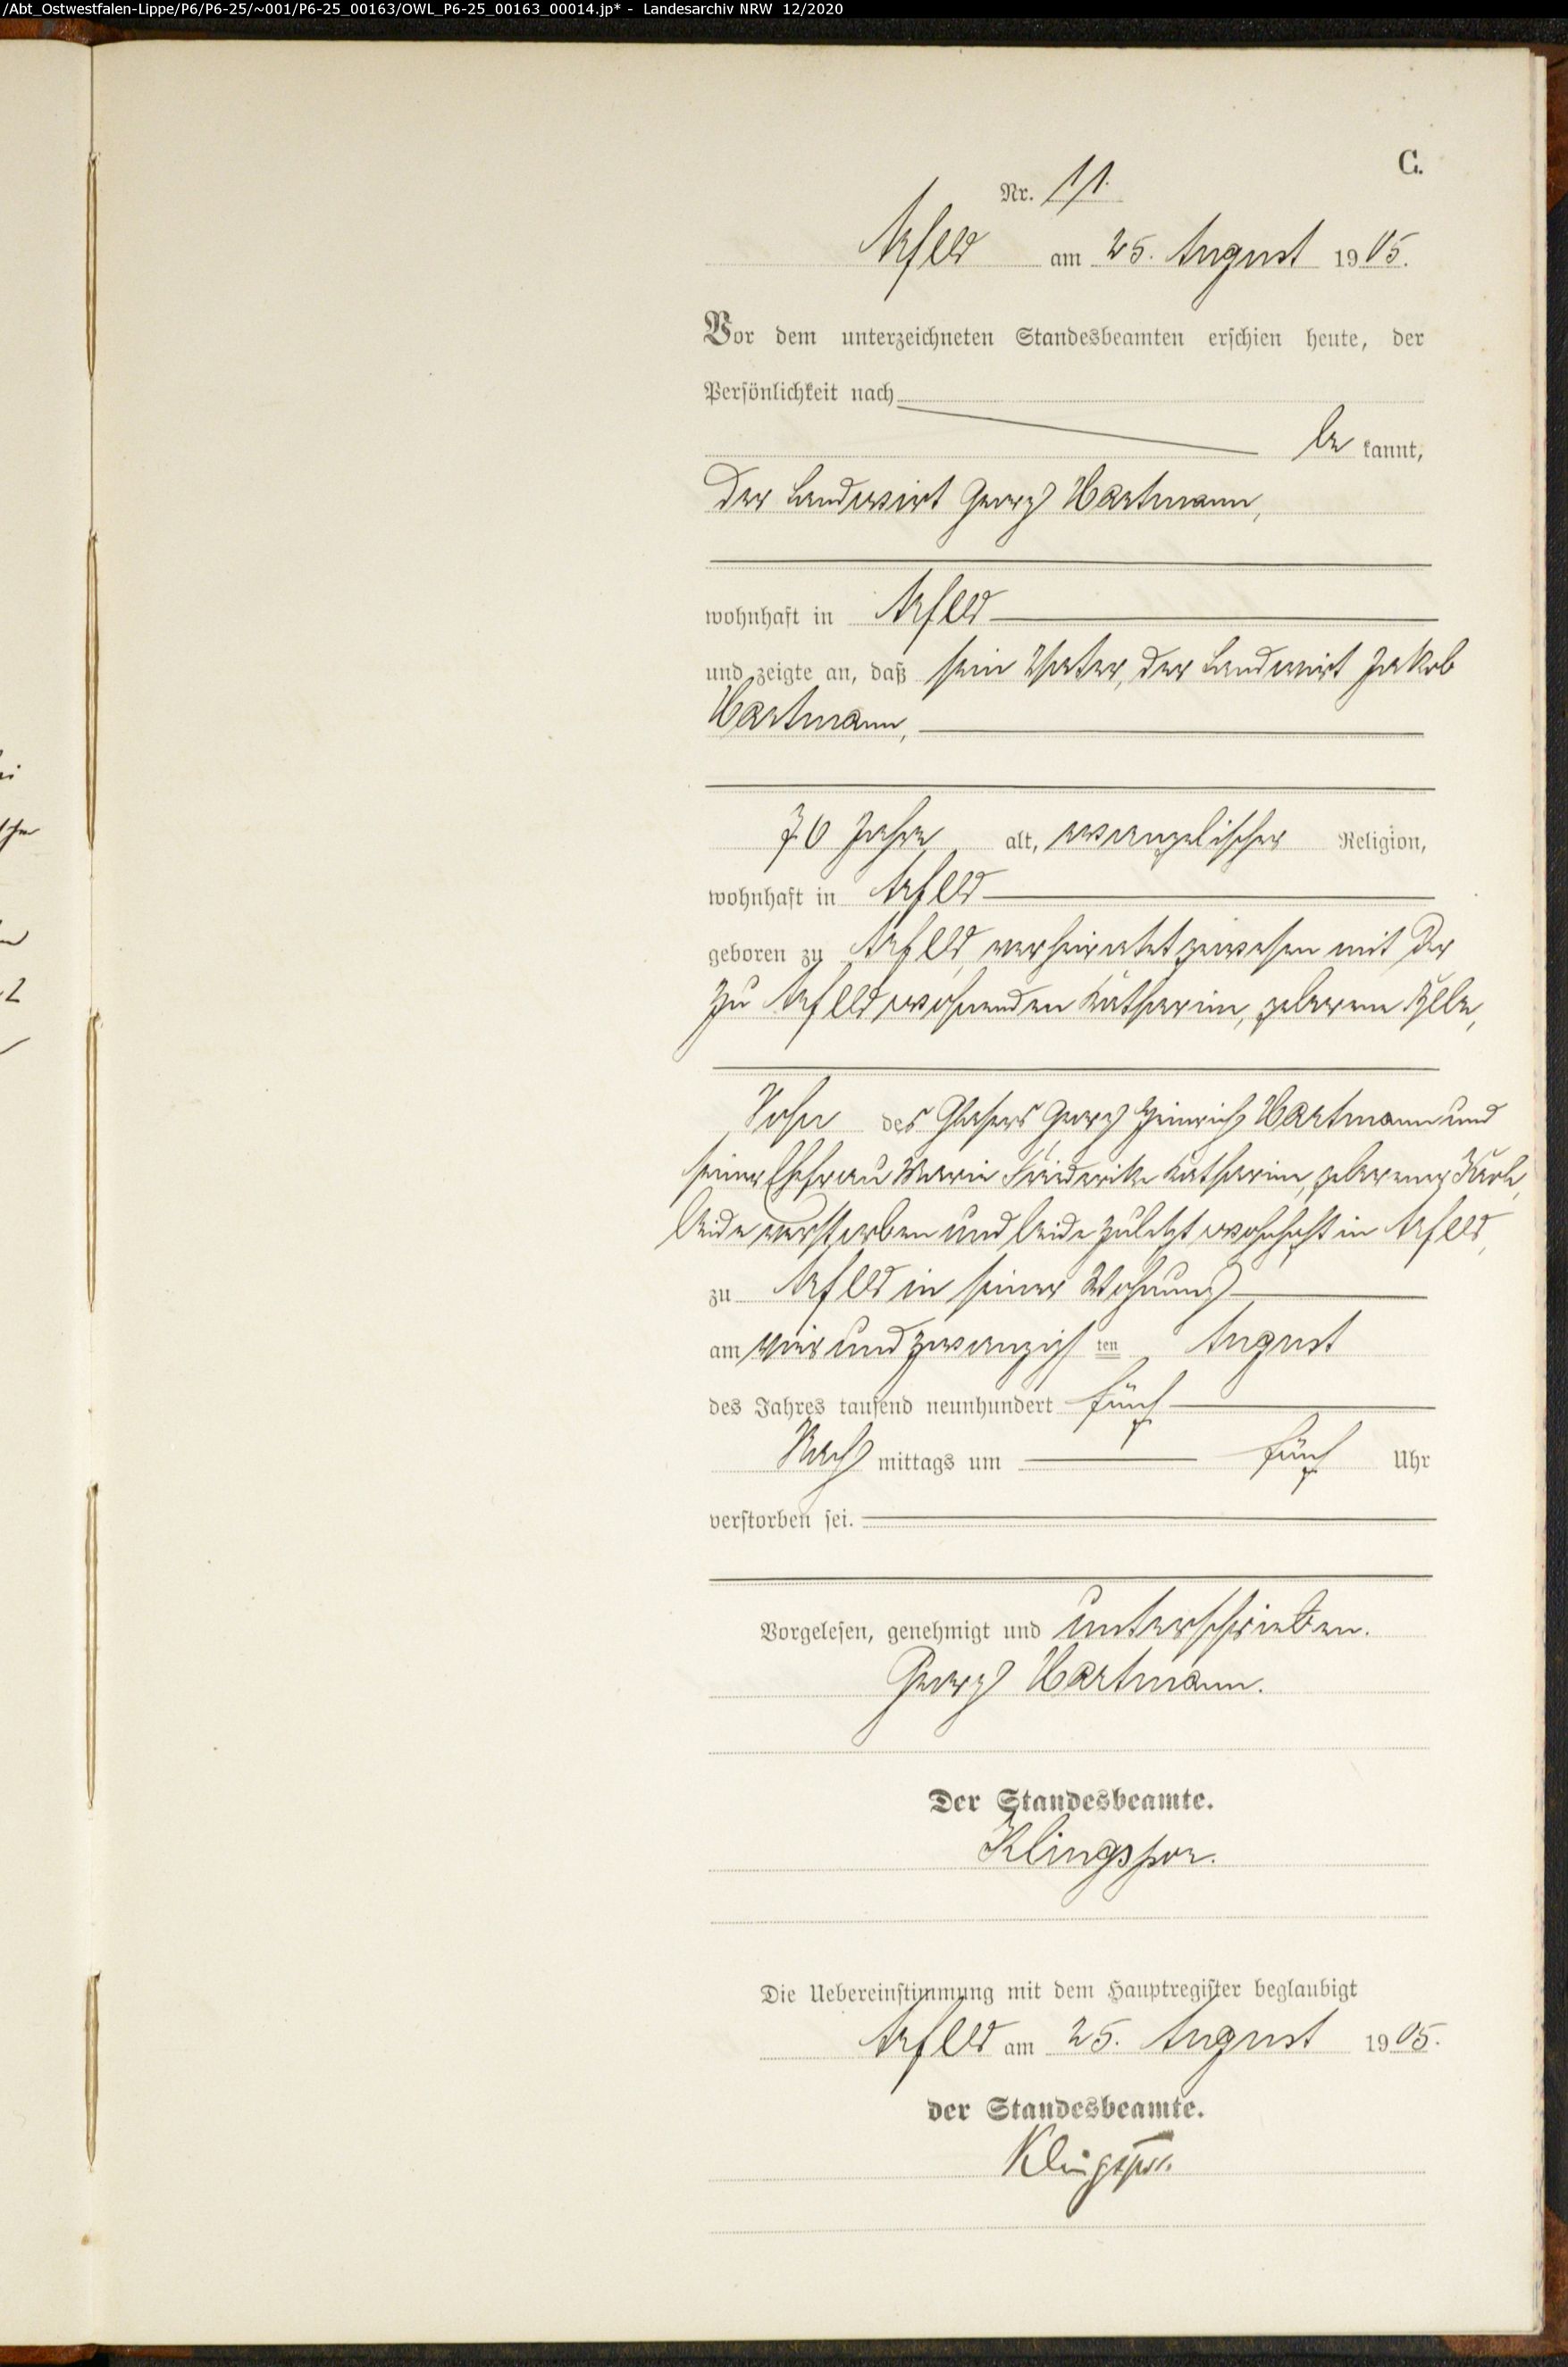 /Abt_Ostwestfalen-Lippe/P6/P6-25/~001/P6-25_00163/OWL_P6-25_00163_00014.jp* - Landesarchiv NRW 12/2020
C.
Nr. 11.
Arfeld am 25. August 1905.
Vor dem unterzeichneten Standesbeamten erschien heute, der
Persönlichkeit nach
be kannt,
der Landwirt Georg Hartmann,
wohnhaft in Arfeld
und zeigte an, daß sein Vater, der Landwirt Jakob
Hartmann,
70 Jahre alt, evangelischer Religion,
wohnhaft in Arfeld
geboren zu Arfeld, verheiratet gewesen mit der
zu Arfeld wohnenden Katharine, geborene
Sohn des Glasers Georg Heinrich Hartmann und
seiner Ehefrau Marie Friederike Katharine, geborener
beide verstorben und beide zuletzt wohnhaft in Arfeld,
zu Arfeld in seiner Wohnung
am vier und zwanzig ten August
des Jahres tausend neunhundert fünf
Nach mittags um fünf Uhr
verstorben sei.
Vorgelesen, genehmigt und unterschrieben.
Georg Hartmann.
Der Standesbeamte.
Klingspor.
Die Uebereinstimmung mit dem Hauptregister beglaubigt
Arfeld am 25. August 1905.
der Standesbeamte.
Klingspor.